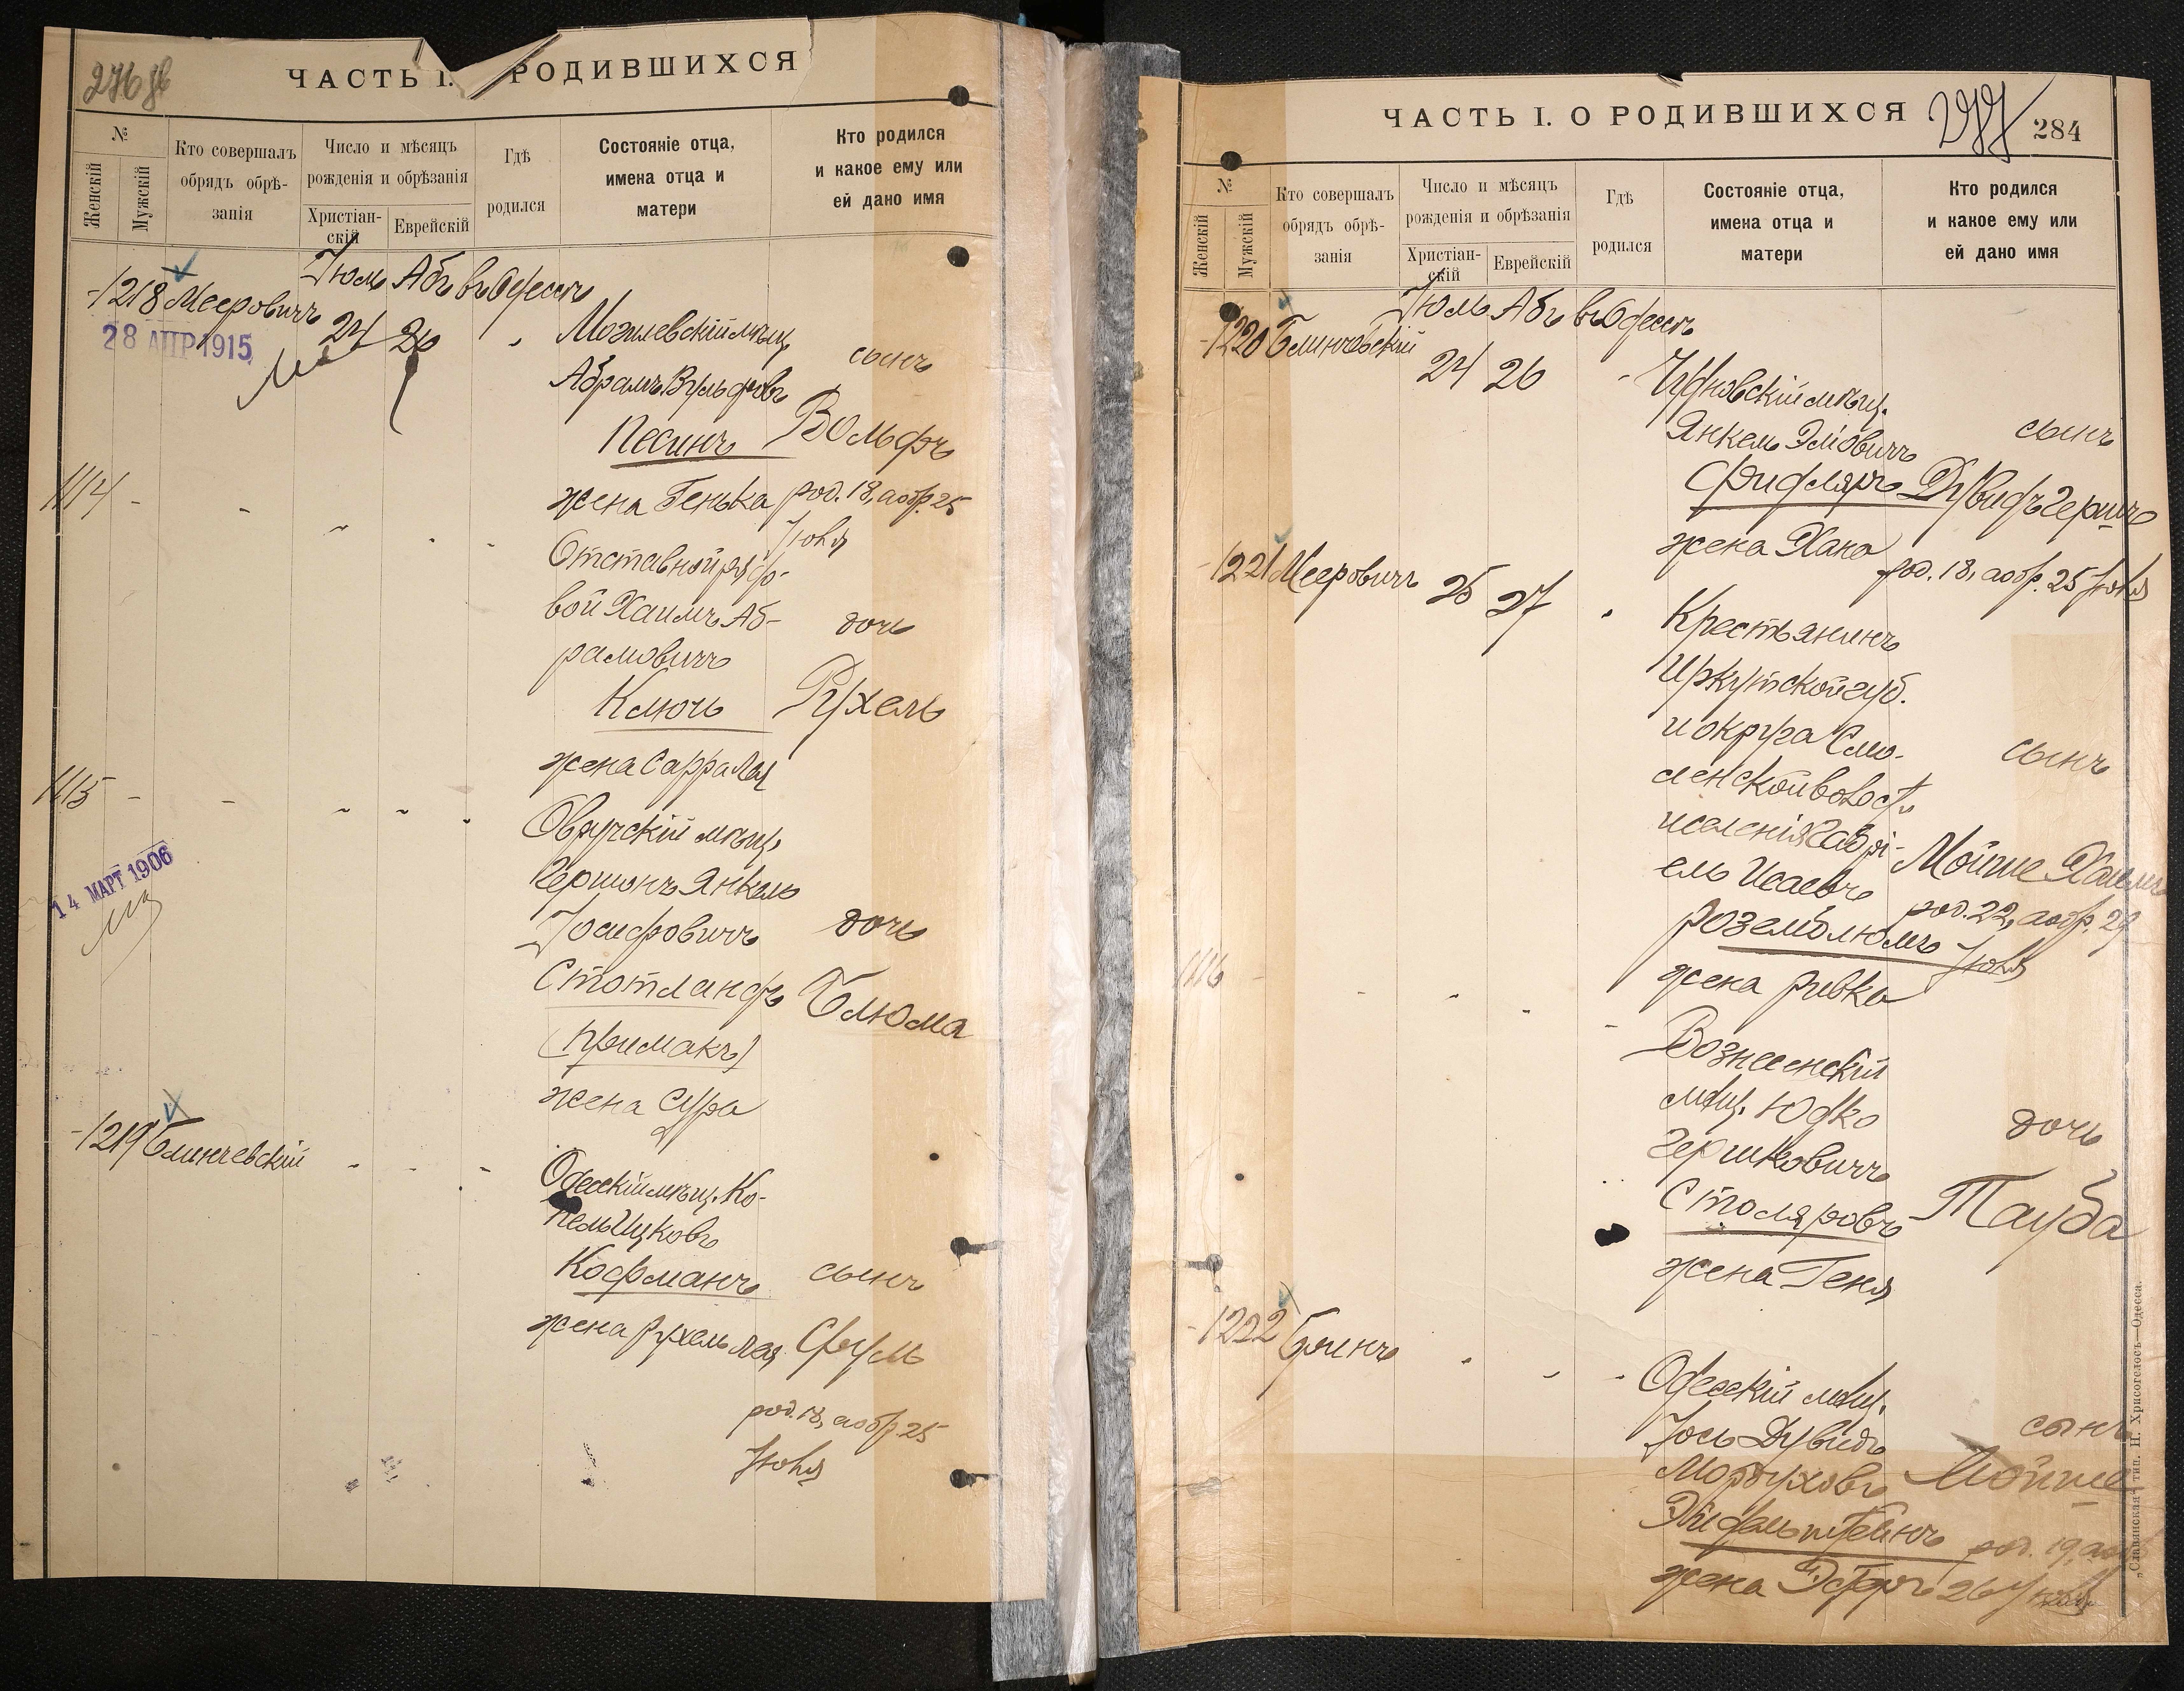 276 об
ЧАСТЬ I. РОДИВШИХСЯ
№
Женскій
Мужскій
Кто совершалъ
обрядъ обрѣ-
занія
Число и мѣсяцъ
рожденія и обрѣзанія
Христіан-
скій
Еврейскій
Гдѣ
родился
Состояніе отца,
имена отца и
матери
Кто родился
и какое ему или
ей дано имя
Іюль Абъ въ Одессѣ
-1218 Мееровичъ 24 26
28 АПР 1915
Могилевскій мѣщ.
Абрамъ Вульфовъ
Песинъ
жена Генька
сынъ
Вольфъ
род. 18, а обр. 25
Іюля
1114 -
Отставной рядо-
вой Хаимъ Аб-
рамовичъ
Ключъ
жена Сарра Лая
дочь
Рухель
1115 -
14 МАРТ 1906
Овручскій мѣщ.
Гершонъ Янкель
Іосифовичъ
Стотландъ
(Примакъ)
жена Сура
дочь
Блюма
-1219 Блинчевскій
Одесскій мѣщ. Ко-
пель Ицковъ
Кофманъ
жена Рухель Лая
сынъ
Сруль
род. 18, а обр. 25
Іюля
ЧАСТЬ I. О РОДИВШИХСЯ
277
284
№
Женскій
Мужскій
Кто совершалъ
обрядъ обрѣ-
занія
Число и мѣсяцъ
рожденія и обрѣзанія
Христіан-
скій
Еврейскій
Гдѣ
родился
Состояніе отца,
имена отца и
матери
Кто родился
и какое ему или
ей дано имя
Іюль Абъ въ Одессѣ
-1220 Блинчевскій 24 26
Чудновскій мѣщ.
Янкель Эліовичъ
Фифляръ
жена Хана
сынъ
Дувидъ Гершъ
род. 18, а обр. 25 Іюля
-1221 Мееровичъ 25 27
Крестьянинъ
Иркутской губ.
и округа Смо-
ленской волост.
и селенія Габрі-
ель Исаевъ
Роземблюмъ
жена Ривка
сынъ
Мойше Хаимъ
род. 22, а обр. 29
Іюля
1116 -
Вознесенскій
мѣщ. Юдко
Гершковичъ
Столяровъ
жена Геня
дочь
Тауба
-1222 Бринъ
Одесскій мѣщ.
Іось Дувидъ
Мордуховъ
Эйдельштейнъ
жена Эстеръ
сынъ
Мойше
род. 19, а обр.
26 Іюля
„Славянская“ тип. Н. Хрисогелосъ—Одесса.